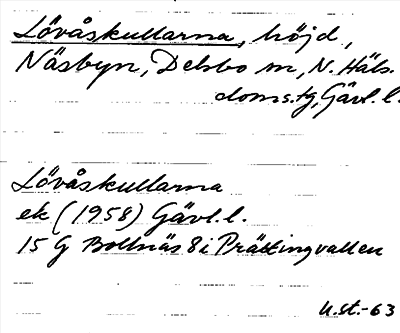 Lövåskullarna, höjd,
Näsbyn, Delsbo sn, N. Häls.
doms.tg, Gävl. l.
Lövåskullarna
ek (1958) Gävl. l.
15 G Bollnäs 8i Prästingvallen
U.st.-63